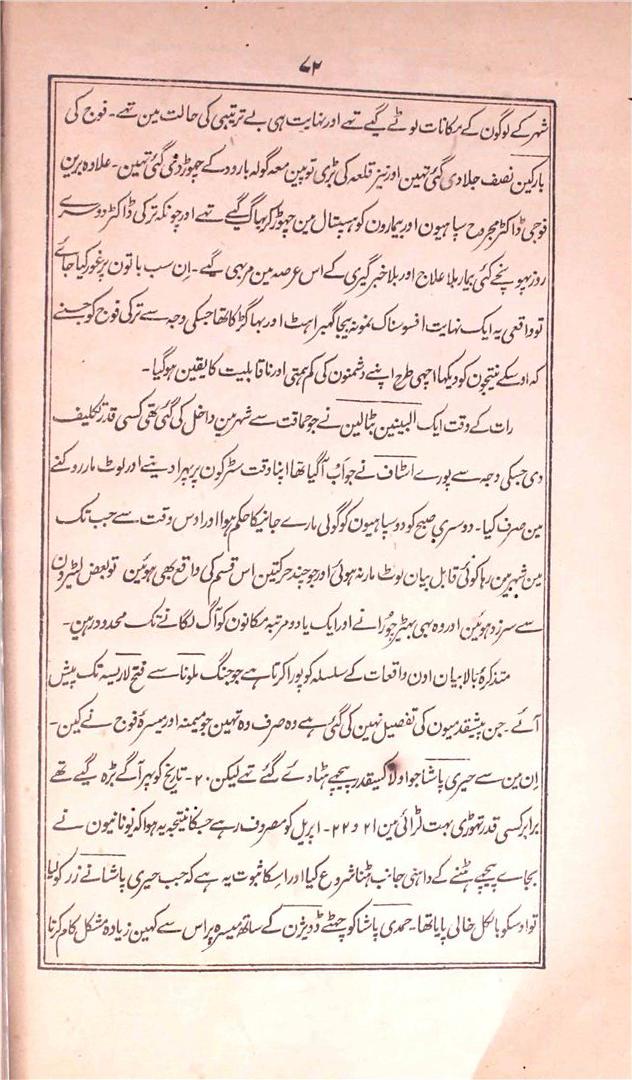 ۷۲
شہر کے لوگون کے مکانات لوٹے گیے تہے اور نہایت ہی بے ترتیبی کی حالت مین تہے۔ فوج کی
بارکین نصف جلا دی گئی تہین اور نیز قلعہ کی بڑی توپین معہ گولہ بارود کے چہوڑ دی گئی تہین۔ علاوہ برین
فوجی ڈاکٹر مجروح سپاہیون اور بیمارون کو ہسپتال مین چہوڑ کر بہاگ گیے تہے اور چونکہ ترکی ڈاکٹر دوسرے
روز پہونچے کئی بیمار بلا علاج اور بلا خبرگیری کے اس عرصہ مین مر بہی گیے۔ اِن سب باتون پر غور کیا جائے
تو واقعی یہ ایک نہایت افسوسناک نمونہ بیجا گہبراہٹ اور بہاگڑ کا تھا جسکی وجہ سے ترکی فوج کو جسنے
کہ اوسکے نتیجون کو دیکہا اچہی طرح اپنے دشمنون کی کم ہمتی اور ناقابلیت کا یقین ہو گیا۔
رات کے وقت ایک البینین بٹالین نے جو حماقت سے شہر مین داخل کی گئی تھی کسی قدر تکلیف
دی جسکی وجہ سے پورے اسٹاف نے جو اَب آ گیا تھا اپنا وقت سڑکون پر پہرا دینے اور لوٹ مار روکنے
مین صرف کیا۔ دوسری صبح کو دو سپاہیون کو گولی مارے جانیکا حکم ہوا اور اوس وقت سے جب تک
مین شہر مین رہا کوئی قابل بیان لوٹ مار نہ ہوئی اور جو چند حرکتین اس قسم کی واقع بھی ہوئین تو بعض لٹیرون
سے سرزد ہوئین اور وہ بہی بہیڑ چُورانے اور ایک یا دو مرتبہ مکانون کو آگ لگانے تک محدود رہین۔
متذکرۂ بالا بیان اون واقعات کے سلسلہ کو پورا کرتا ہے جو جنگ ملونا سے فتح لاریسہ تک پیش
آئے۔ جن پیشقدمیون کی تفصیل نہین کی گئی ہے وہ صرف وہ تہین جو میمنہ اور میسرۂ فوج نے کین۔
اِن مین سے حیری پاشا جو اولاً کسیقدر پیچہے ہٹا دئے گئے تہے لیکن ۲۰۔ تاریخ کو پہر آگے بڑہ گیے تہے
برابر کسی قدر تہوڑی بہت لڑائی مین ۲۱ و ۲۲۔ اپریل کو مصروف رہے جسکا نتیجہ یہ ہوا کہ یونانیون نے
بجاے پیچہے ہٹنے کے داہنی جانب ہٹنا شروع کیا اور اسکا ثبوت یہ ہے کہ جب حیری پاشا نے زرکو لیا
تو اوسکو بالکل خالی پایا تھا۔ حمدی پاشا کو چہٹے ڈویژن کے ساتھ میسرہ پر اس سے کہین زیادہ مشکل کام کرنا